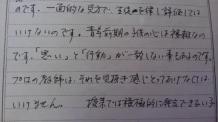 のです。一面的な見方で、生徒を律し評価しては
いけないのです。青年前期の子供の心は複雑なの
です。「思い」と「行動」が一致しない事もあるのです。
プロの教師は、それを見抜き感じとってあげなくては
いけません。 授業では積極的に発言できない子